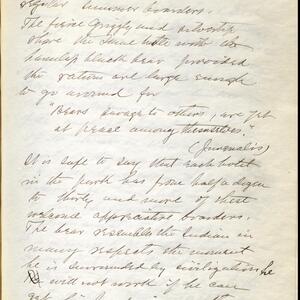 regular summer boarders.
The fierce Grizzly and
share the same with the
humble black bear provided
the rations are large enough
to go around for
"Bears savage to others, are yet
at peace among themselves."
(Juvenalis)
It is safe to say that each hotel
in the park has from half a dozen
to thirty and more of these
welcome appreciative boarders.
The bear resembles the Indian in
many respects the moment
he is surrounded by civilization he
will not work if he can